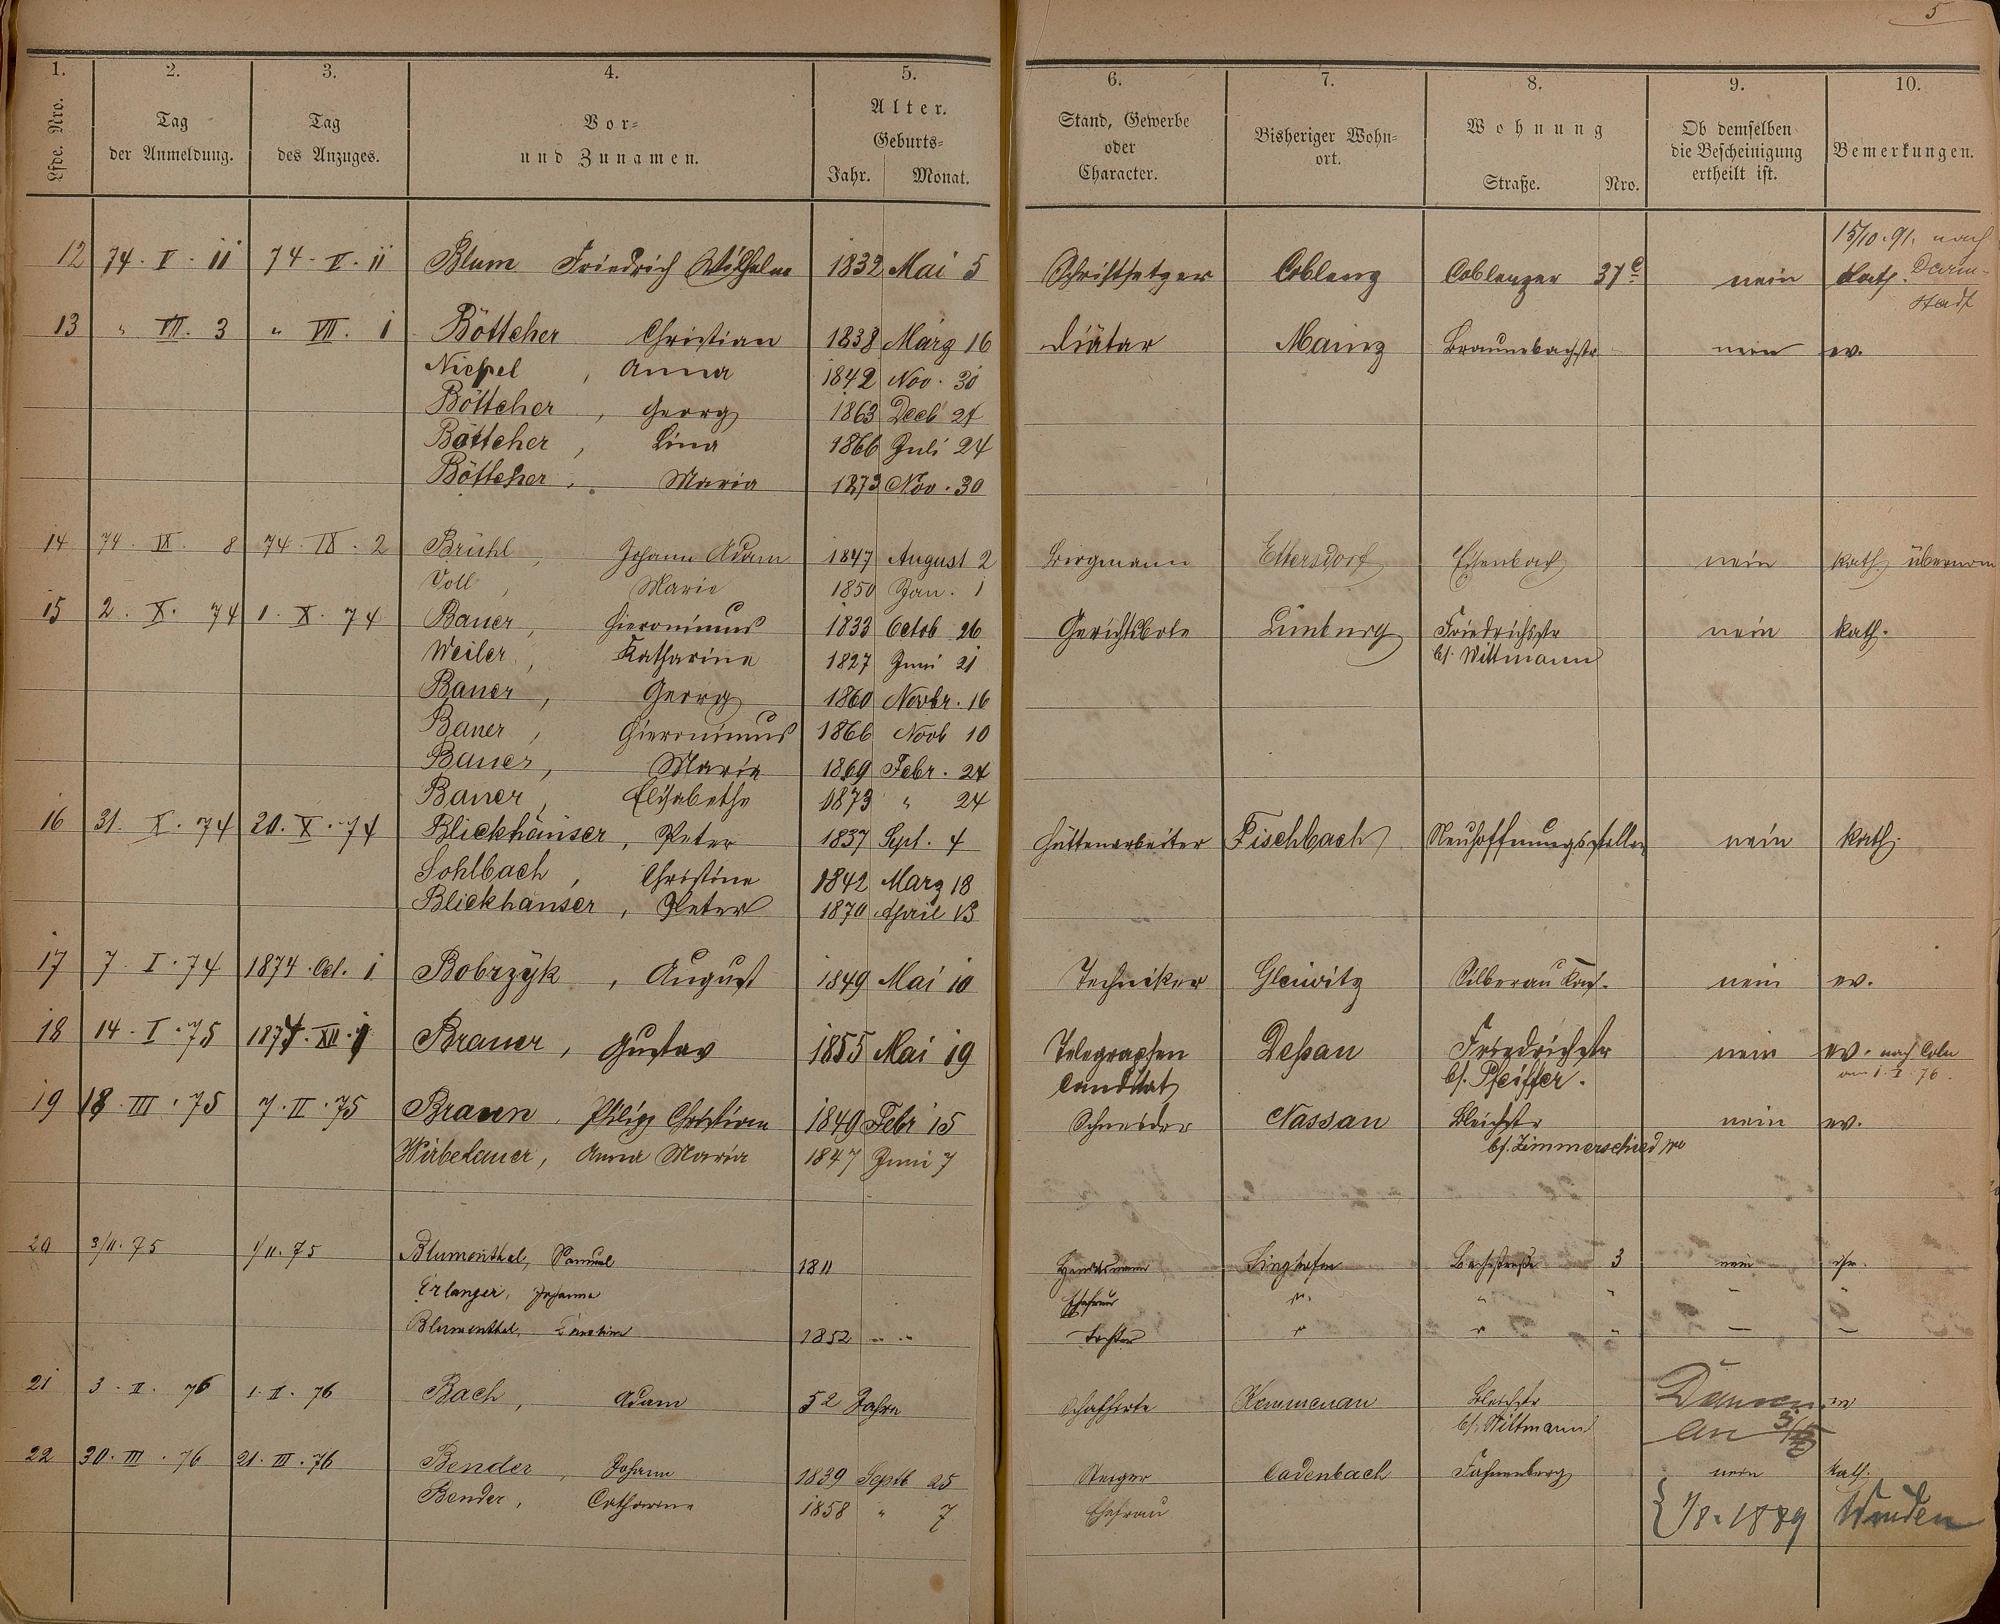 5
1. 2. 3. 4. 5. 6. 7. 8. 9. 10.
Lfde. Nro. Tag der Anmeldung. Tag des Anzuges. Vor- und Zunamen. Alter. Geburts- Jahr. Monat. Stand, Gewerbe oder Character. Bisheriger Wohn-ort. Wohnung Straße. Nro. Ob demselben die Bescheinigung ertheilt ist. Bemerkungen.
15/10.91. nach
12 74 - V - 11 74 - V - 11 Blum Friedrich Wilhelm 1832 Mai 5 Schriftsetzer Coblenz Coblenzer 37c nein kath. Darm-
stadt
13 " VII. 3 " VII. 1 Böttcher Christian 1838 März 16 Diätar Mainz nein ev.
Nickel, Anna 1842 Nov. 30
Böttcher, Georg 1863 Decb 24
Böttcher, Lina 1866 Juli 24
Böttcher, Maria 1873 Nov. 30
14 74. IX. 8 74. IX. 2 Brühl, Johann Adam 1847 August 2 Bergmann Ettersdorf Eisenbach nein kath. übernom
Voll, Marie 1850 Jan. 1
15 2. X. 74 1. X. 74 Bauer, Hieronimus 1833 Octob 26 Gerichtsbote Limburg Friedrichstr nein kath.
Weiler, Katharina 1827 Juni 21 bf. Wittmann
Bauer, Georg 1860 Novbr. 16
Bauer, Hieronimus 1866 Novb 10
Bauer, Maria 1869 Febr. 24
Bauer, Elisabethe 1873 " 24
16 31. X. 74 20. X. 74 Blickhäuser, Peter 1837 Sept. 4 Hüttenarbeiter Fischbach Neuhoffnungsstollen nein kath.
Sohlbach, Christine 1842 März 18
Blickhäuser, Peter 1870 April 13
17 7. I. 74 1874. Oct. 1 Bobrzyk, August 1849 Mai 10 Techniker Gleiwitz Silberau nein ev.
18 14. I. 75 1874. XII. 1 Brauer, Gustav 1855 Mai 19 Telegraphen Deßau Friedrichstr nein ev. nach Coln
Candidat bf. Pfeiffer. am 1. I. 76.
19 18. III. 75 7. II. 75 Braun, Philipp Christian 1849 Febr 15 Schneider Nassau Bleichstr nein ev.
Wirbelauer, Anna Maria 1847 Juni 7 bf. Zimmerschied Ww
20 3/II. 75 1/II. 75 Blumenthal, Samuel 1811 Handelsmann Singhofen Bachstraße 3 nein isr.
Erlanger, Johanna Ehefrau " " " - "
Blumenthal, 1852 " " Tochter " " " - -
21 3. II. 76 1. II. 76 Bach, Adam 52 Jahre Schafhirte Kemmenau Bleichstr ev
bf. Wittmann
22 30. III. 76 21. III. 76 Bender, Johann 1839 Septb 25 Steiger Cadenbach Fahnenberg nein kath.
Bender, Catharina 1858 " 7 Ehefrau 1/8. 1889 Winden